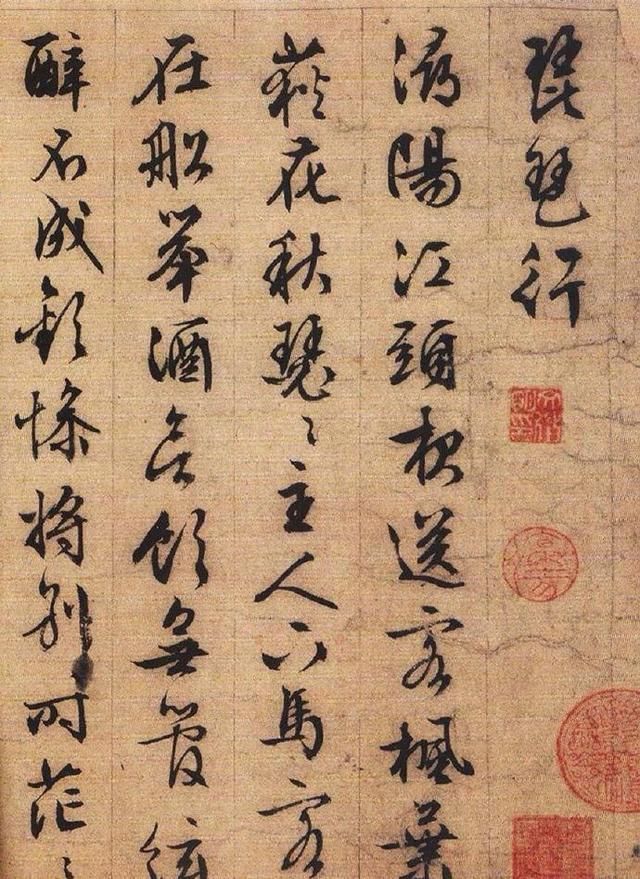 琵琶行
潯陽江頭夜送客楓葉
荻花秋瑟々主人下馬客
在船舉酒欲飲無管絃
醉不成歡慘將別時茫々